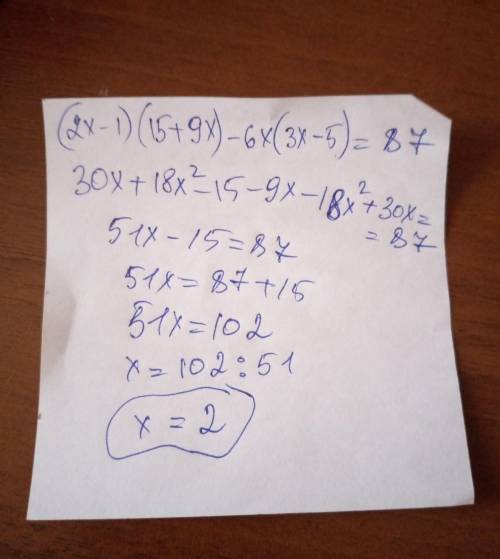 (2x-1)(15+9x)-6x(3x-5)=87
30x+18x²-15-9x-18x²+30x=
=87
51x-15=87
51x=87+15
51x=102
x=102:51
x=2